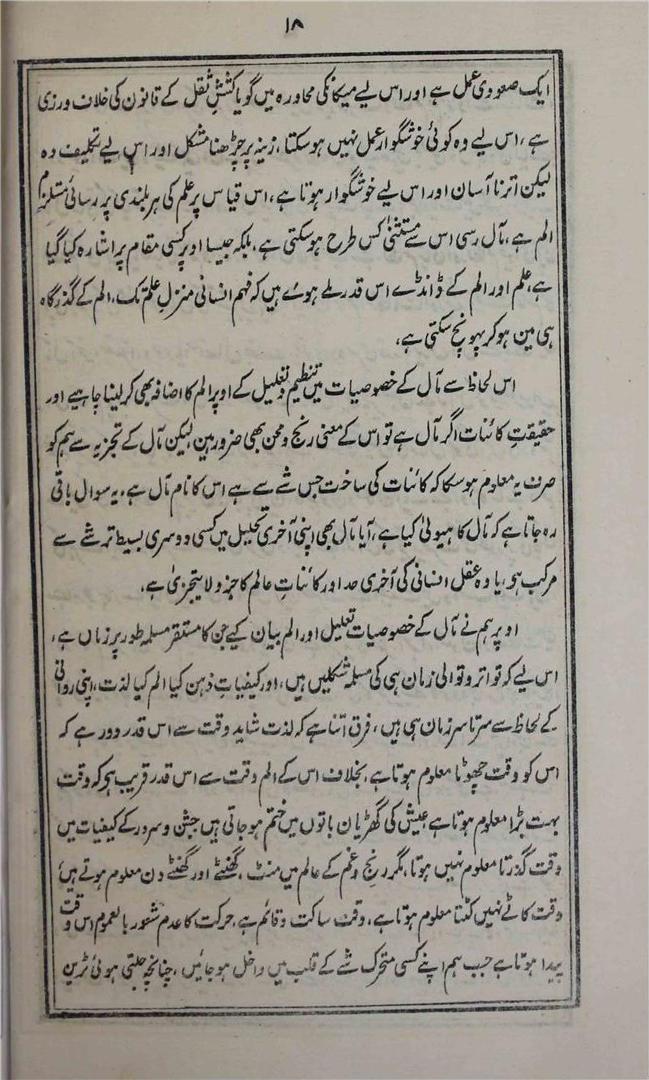 ۱۸
ایک صعودی عمل ہے اور اس لیے میکانکی محاورہ میں گویا کششِ ثقل کے قانون کی خلاف ورزی
ہے، اس لیے وہ کوئی خوشگوار عمل نہیں ہو سکتا، زینہ پر چڑھنا مشکل اور اس لیے تکلیف دہ
لیکن اترنا آسان اور اس لیے خوشگوار ہوتا ہے، اس قیاس پر علم کی ہر بلندی پر رسائی مستلزم
الم ہے، مآل رسی اس سے مستثنیٰ کس طرح ہو سکتی ہے، بلکہ جیسا اوپر کسی مقام پر اشارہ کیا گیا
ہے، علم اور الم کے ڈانڈے اس قدر ملے ہوئے ہیں کہ فہم انسانی منزلِ علم تک، الم کے گذرگاہ
ہی مین ہو کر پہونچ سکتی ہے،
اس لحاظ سے مآل کے خصوصیات میں تنظیم و تعلیل کے اوپر الم کا اضافہ بھی کر لینا چاہیے اور
حقیقتِ کائنات اگر مآل ہے تو اس کے معنی رنج و محن بھی ضرور ہین لیکن مآل کے تجزیہ سے ہم کو
صرف یہ معلوم ہو سکا کہ کائنات کی ساخت جس شے سے ہے اس کا نام مآل ہے، یہ سوال باقی
رہ جاتا ہے کہ مآل کا ہیولیٰ کیا ہے، آیا مآل بھی اپنی آخری تحلیل میں کسی دوسری بسیط تر شے سے
مرکب ہو، یا وہ عقل انسانی کی آخری حد اور کائناتِ عالم کا جزو لا یتجزیٰ ہے،
اوپر ہم نے مآل کے خصوصیات تعلیل اور الم بیان کیے جن کا مستقر مسلمہ طور پر زماں ہے،
اس لیے کہ تواتر و توالی زمان ہی کی مسلمہ شکلیں ہیں، اور کیفیاتِ ذہن کیا الم کیا لذت، اپنی روانی
کے لحاظ سے سرتاسر زمان ہی ہیں، فرق اتنا ہے کہ لذت شاید وقت سے اس قدر دور ہے کہ
اس کو وقت چھوٹا معلوم ہوتا ہے، بخلاف اس کے الم وقت سے اس قدر قریب ہو کہ وقت
بہت بڑا معلوم ہوتا ہے، عیش کی گھڑیان باتوں میں ختم ہو جاتی ہیں جشن و سرور کے کیفیات میں
وقت گذرتا معلوم نہیں ہوتا، مگر رنج و غم کے عالم میں منٹ، گھنٹے اور گھنٹے دن معلوم ہوتے ہیں،
وقت کاٹے نہیں کٹتا معلوم ہوتا ہے، وقت ساکت و قائم ہے، حرکت کا عدم شعور بالعموم اس وقت
پیدا ہوتا ہے جب ہم اپنے کسی متحرک شے کے قلب میں داخل ہو جائیں، چنانچہ چلتی ہوئی ٹرین